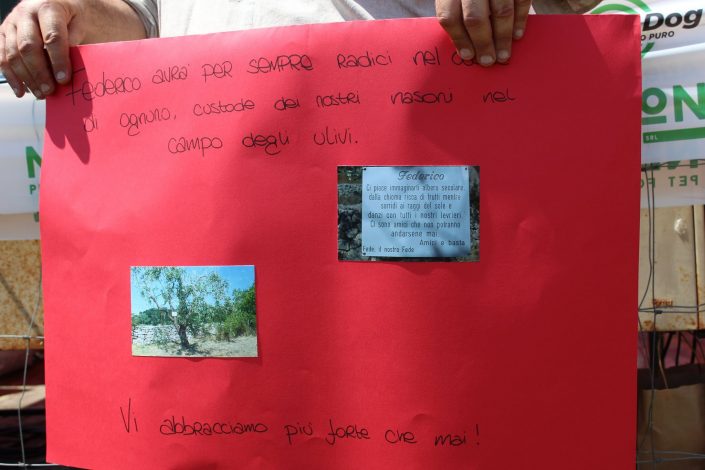 Federico avrà per sempre radici nel
di ognuno, custode dei nostri nasoni nel
campo degli ulivi.
Federico
Ci piace immaginarti albero secolare,
dalla chioma ricca di frutti mentre
sorridi ai raggi del sole e
danzi con tutti i nostri levrieri.
Ci sono amici che non potranno
andarsene mai.
Amici e basta
Fede, il nostro Fede
Vi abbracciamo più forte che mai!
Dog
O PURO
ON
SRL
PET FO